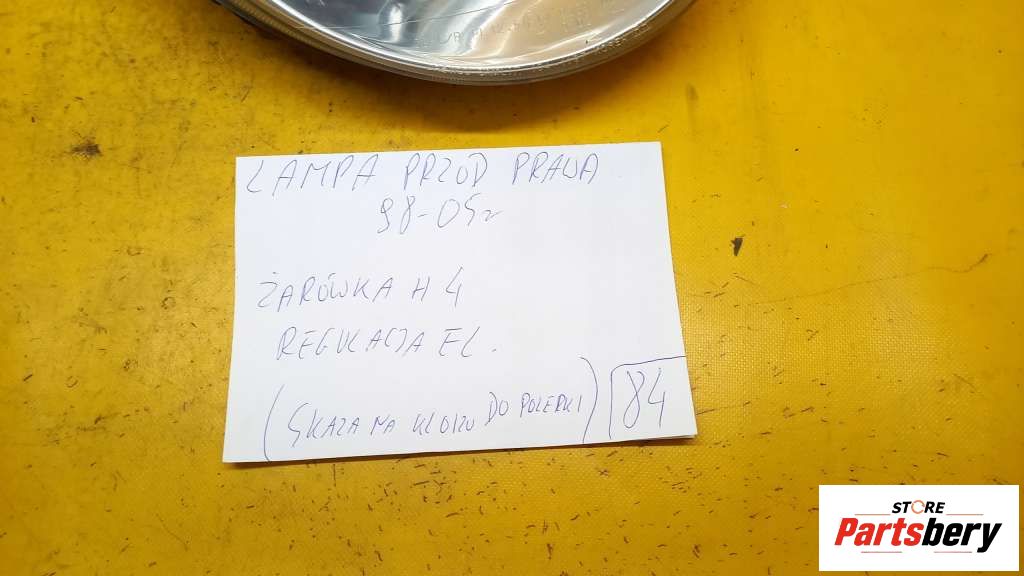 LAMPA PRZOD PRAWA
98-05r
ŻARÓWKA H4
REGULACJA EL.
(SKAZA NA KLOSZU DO POLERKI)
84
STORE
Partsbery